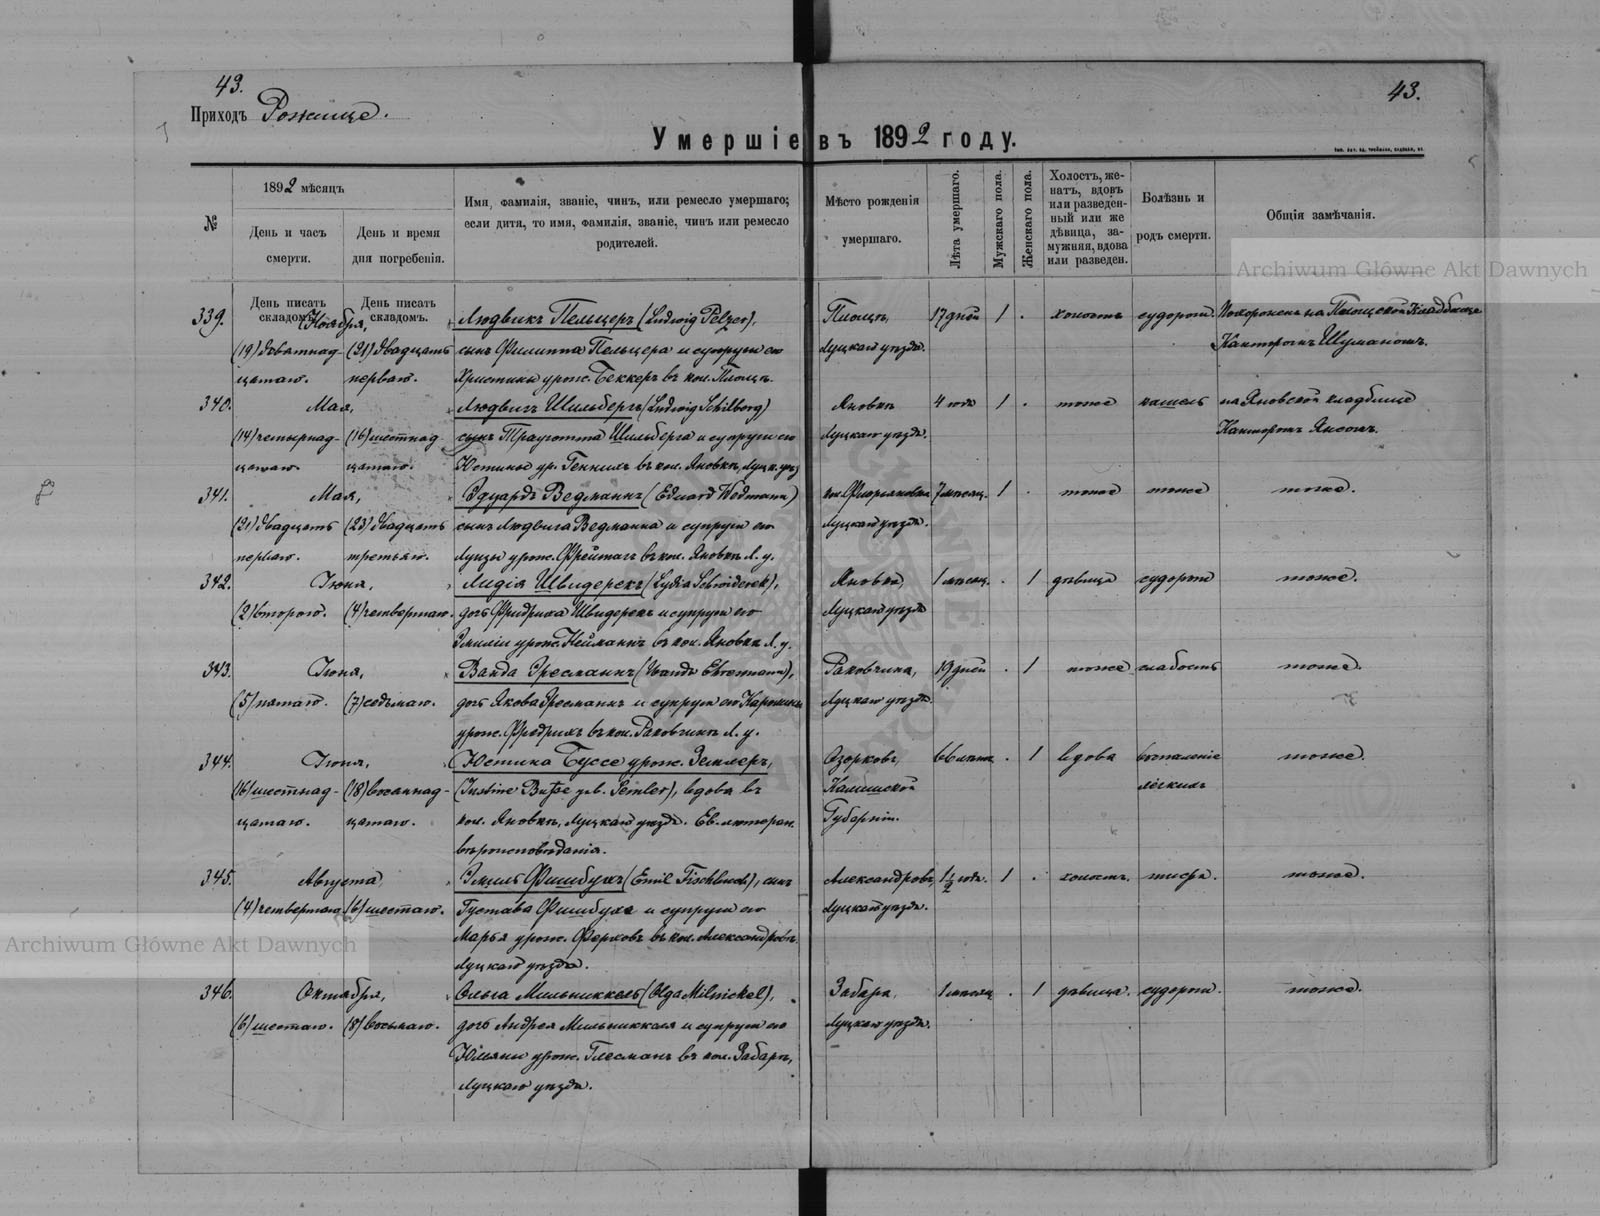 43.
43.
Приходъ Рожище.
Умершіе въ 1892 году.
№
1892 мѣсяцъ
День и часъ смерти.
День и время дня погребенія.
Имя, фамилія, званіе, чинъ, или ремесло умершаго; если дитя, то имя, фамилія, званіе, чинъ или ремесло родителей.
Мѣсто рожденія умершаго.
Лѣта умершаго.
Мужскаго пола.
Женскаго пола.
Холостъ, женатъ, вдовъ или разведенный или же дѣвица, замужняя, вдова или разведен.
Болѣзнь и родъ смерти.
Общія замѣчанія.
День писать складомъ.
День писать складомъ.
339. Ноября, Людвикъ Пельцеръ (Ludwig Pelzer), 17 дней 1 . холостъ судорги Похороненъ на Кладбище
(19) девятнад- (21) двадцать сынъ Филиппа Пельцера и супруги его Луцкаго уѣзда. Канторомъ Шуманомъ.
цатаго. перваго. Христины урож. Беккеръ въ кол.
340. Мая, Людвигъ Шильбергъ (Ludwig Schilberg) Яновка 4 года 1 . тоже кашель на Яновской кладбище
(14) четырнад- (16) шестнад- сынъ Трауготта Шильберга и супруги его Луцкаго уѣзда. Канторомъ
цатаго. цатаго. Юстины ур. въ кол. Яновкѣ, Луцк. уѣз
341. Мая, Эдуардъ Ведманнъ (Eduard Wedmann) кол. 7 мѣсяц. 1 . тоже тоже тоже.
(21) двадцать (23) двадцать сынъ Людвига Ведманна и супруги его Луцкаго уѣзда.
перваго. третьяго. Луизы урож. Фрейтагъ въ кол. Яновкѣ Л. у.
342. Іюня, Лидія Швидерекъ (Lydia Schwiderek), Яновка, 1 мѣсяц. . 1 дѣвица судорги тоже.
(2) второго. (4) четвертаго. дочь Фридриха Швидерекъ и супруги его Луцкаго уѣзда
Эмиліи урож. Нейманнъ въ кол. Яновкѣ Л. у.
343. Іюня, Ванда Эресманнъ (Wanda Ehresmann), 19 дней . 1 тоже слабость тоже.
(5) пятаго. (7) седьмаго. дочь Якова Эресманнъ и супруги его Каролины Луцкаго уѣзда.
урож. Фридрихъ въ кол. Л. у.
344. Іюня, Юстина Буссе урож. Землеръ, Озорковъ, 66 лѣтъ . 1 вдова воспаленіе тоже.
(16) шестнад- (18) восемнад- (Justine Busse geb. Semler), вдова въ Калишской лёгкихъ
цатаго. цатаго. кол. Яновкѣ, Луцкаго уѣзда. Ев. лютеран. Губерніи.
вѣроисповѣданія.
345. Августа, Эмиль Фишбухъ (Emil Fischbuch), сынъ Александровъ, 1½ года. 1 . холостъ. тоже.
(4) четвертаго (6) шестаго. Густава Фишбуха и супруги его Луцкаго уѣзда.
Марья урож. въ кол. Александровкѣ.
Луцкаго уѣзда.
346. Октября, Ольга Мильниккель (Olga Milnickel), Забара, 1 мѣсяц . 1 дѣвица. судорги. тоже.
(6) шестаго. (8) восьмаго. дочь Андрея Мильниккеля и супруги его Луцкаго уѣзда.
Юліяны урож. въ кол. Забарѣ,
Луцкаго уѣзда.
Archiwum Główne Akt Dawnych
Archiwum Główne Akt Dawnych